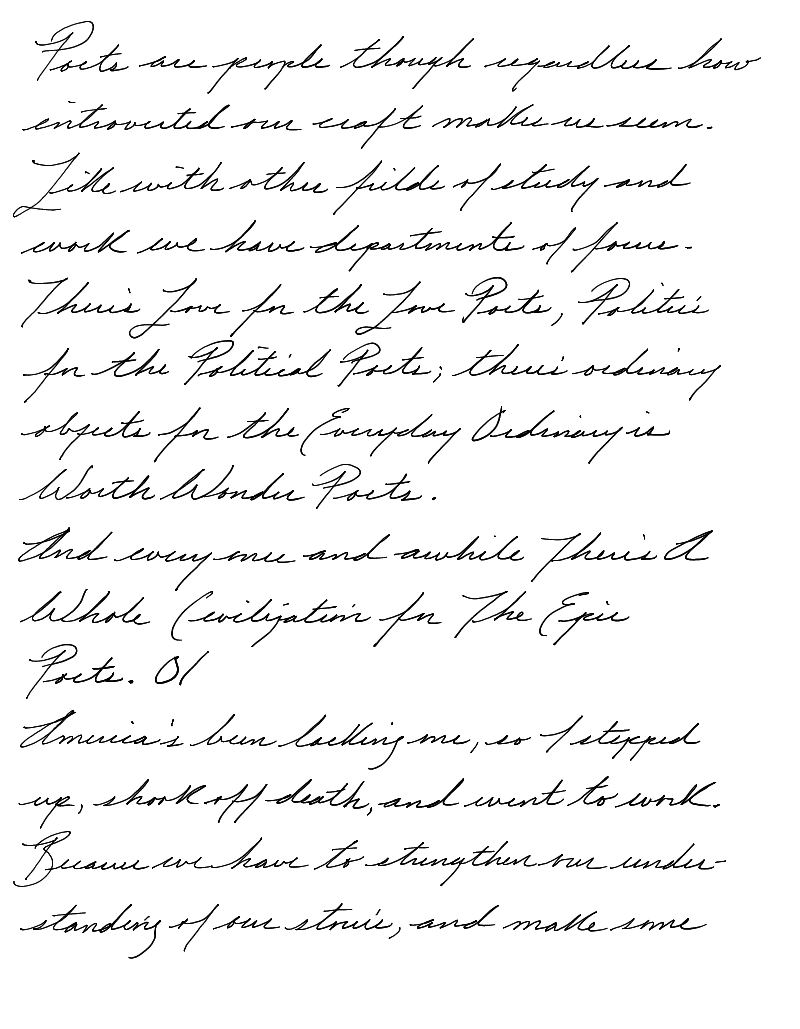 Poets are people though regardless how
introverted our craft makes us seem.
Like with other fields of study and
work we have departments of focus.
There's Love for the Love Poets, Politics
for the Political Poets; there's ordinary
objects for the Everyday Ordinary is
Worth Wonder Poets.
And every once and awhile There's A
Whole Civilization for The Epic
Poets. 01
America's been lacking me, so I stepped
up, shook off death, and went to work.
Because we have to strengthen our under-
standing of our stories, and make some